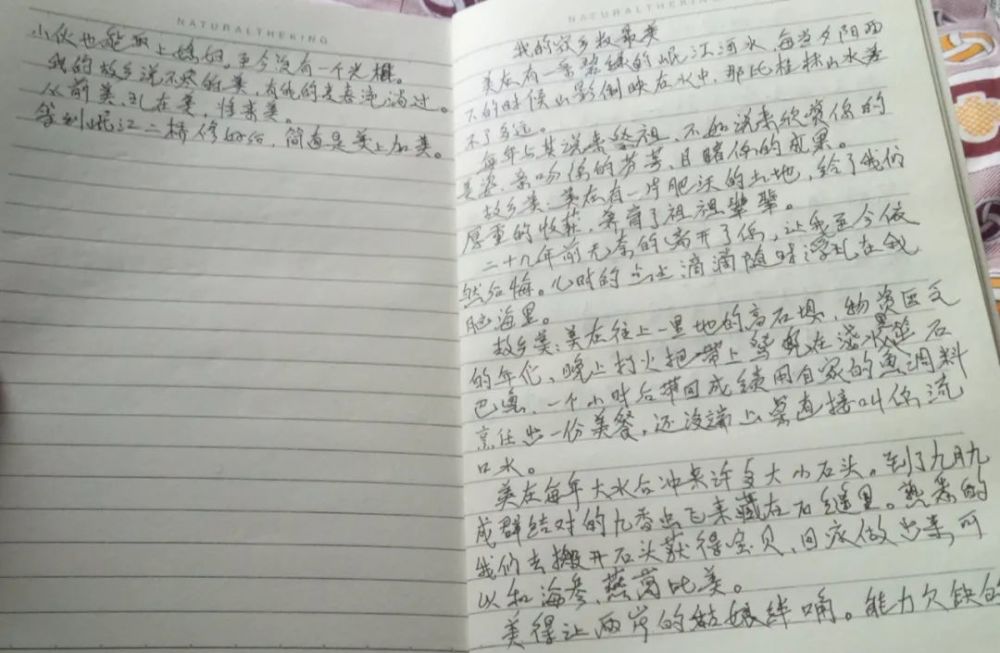 NATURALTHEKING
我的家乡故最美
美在有一条碧绿的岷江河水，每当夕阳西
下的时候山影倒映在水中，那比桂林山水差
不了多远。
每年与其说来祭祖，不如说来欣赏你的
美姿，亲吻你的芳芳，目睹你的成果。
故乡美，美在有一片肥沃的土地，给了我们
厚重的收获，养育了祖祖辈辈。
二十九年前无奈的离开了你，让我至今依
然后悔。儿时的点点滴滴随时浮现在我
脑海里。
故乡美：美在往上一里地的高石坝，物资匮乏
的年代，晚上打火把带上在浅水处石
巴鱼，一个小时后带回成绩用自家的鱼调料
烹饪出一份美餐，还没端上桌直接叫你流
口水。
美在每年大水后冲来许多大小石头。到了九月九
成群结对的九香虫飞来藏在石缝里。熟悉的
我们去搬开石头获得宝贝，回底做出来，可
以和海参、燕窝比美。
美得让两岸的姑娘绊嘴。能力欠缺的
NATURALTHEKING
小伙也能取上媳妇。至今没有一个光棍。
我的故乡说不尽的美，有他的文喜流淌过。
从前美，现在美，怪来美。
等到岷江二桥修好后，简直是美上加美。